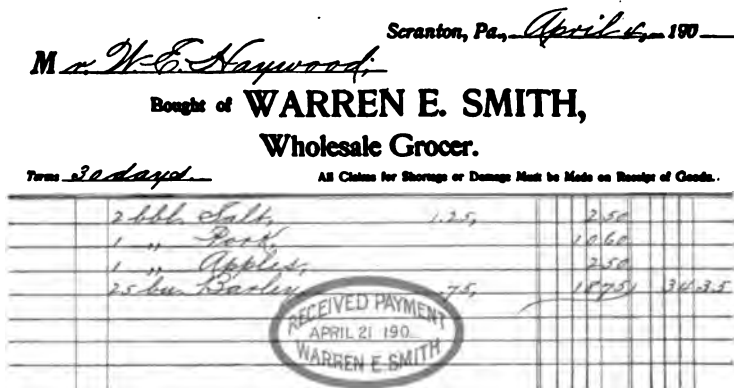 Scranton, Pa., April 4, 190
Mr. W. E. Haywood,
Bought of WARREN E. SMITH,
Wholesale Grocer.
Terms 30 days. All Claims for Shortage or Damage Must be Made on Receipt of Goods.
2 bbl. Salt, 1.25, 2 50
1 " Pork, 10 60
1 " Apples, 2 50
25 bu. Barley .75, 18 75 34 35
RECEIVED PAYMENT
APRIL 21 190
WARREN E SMITH